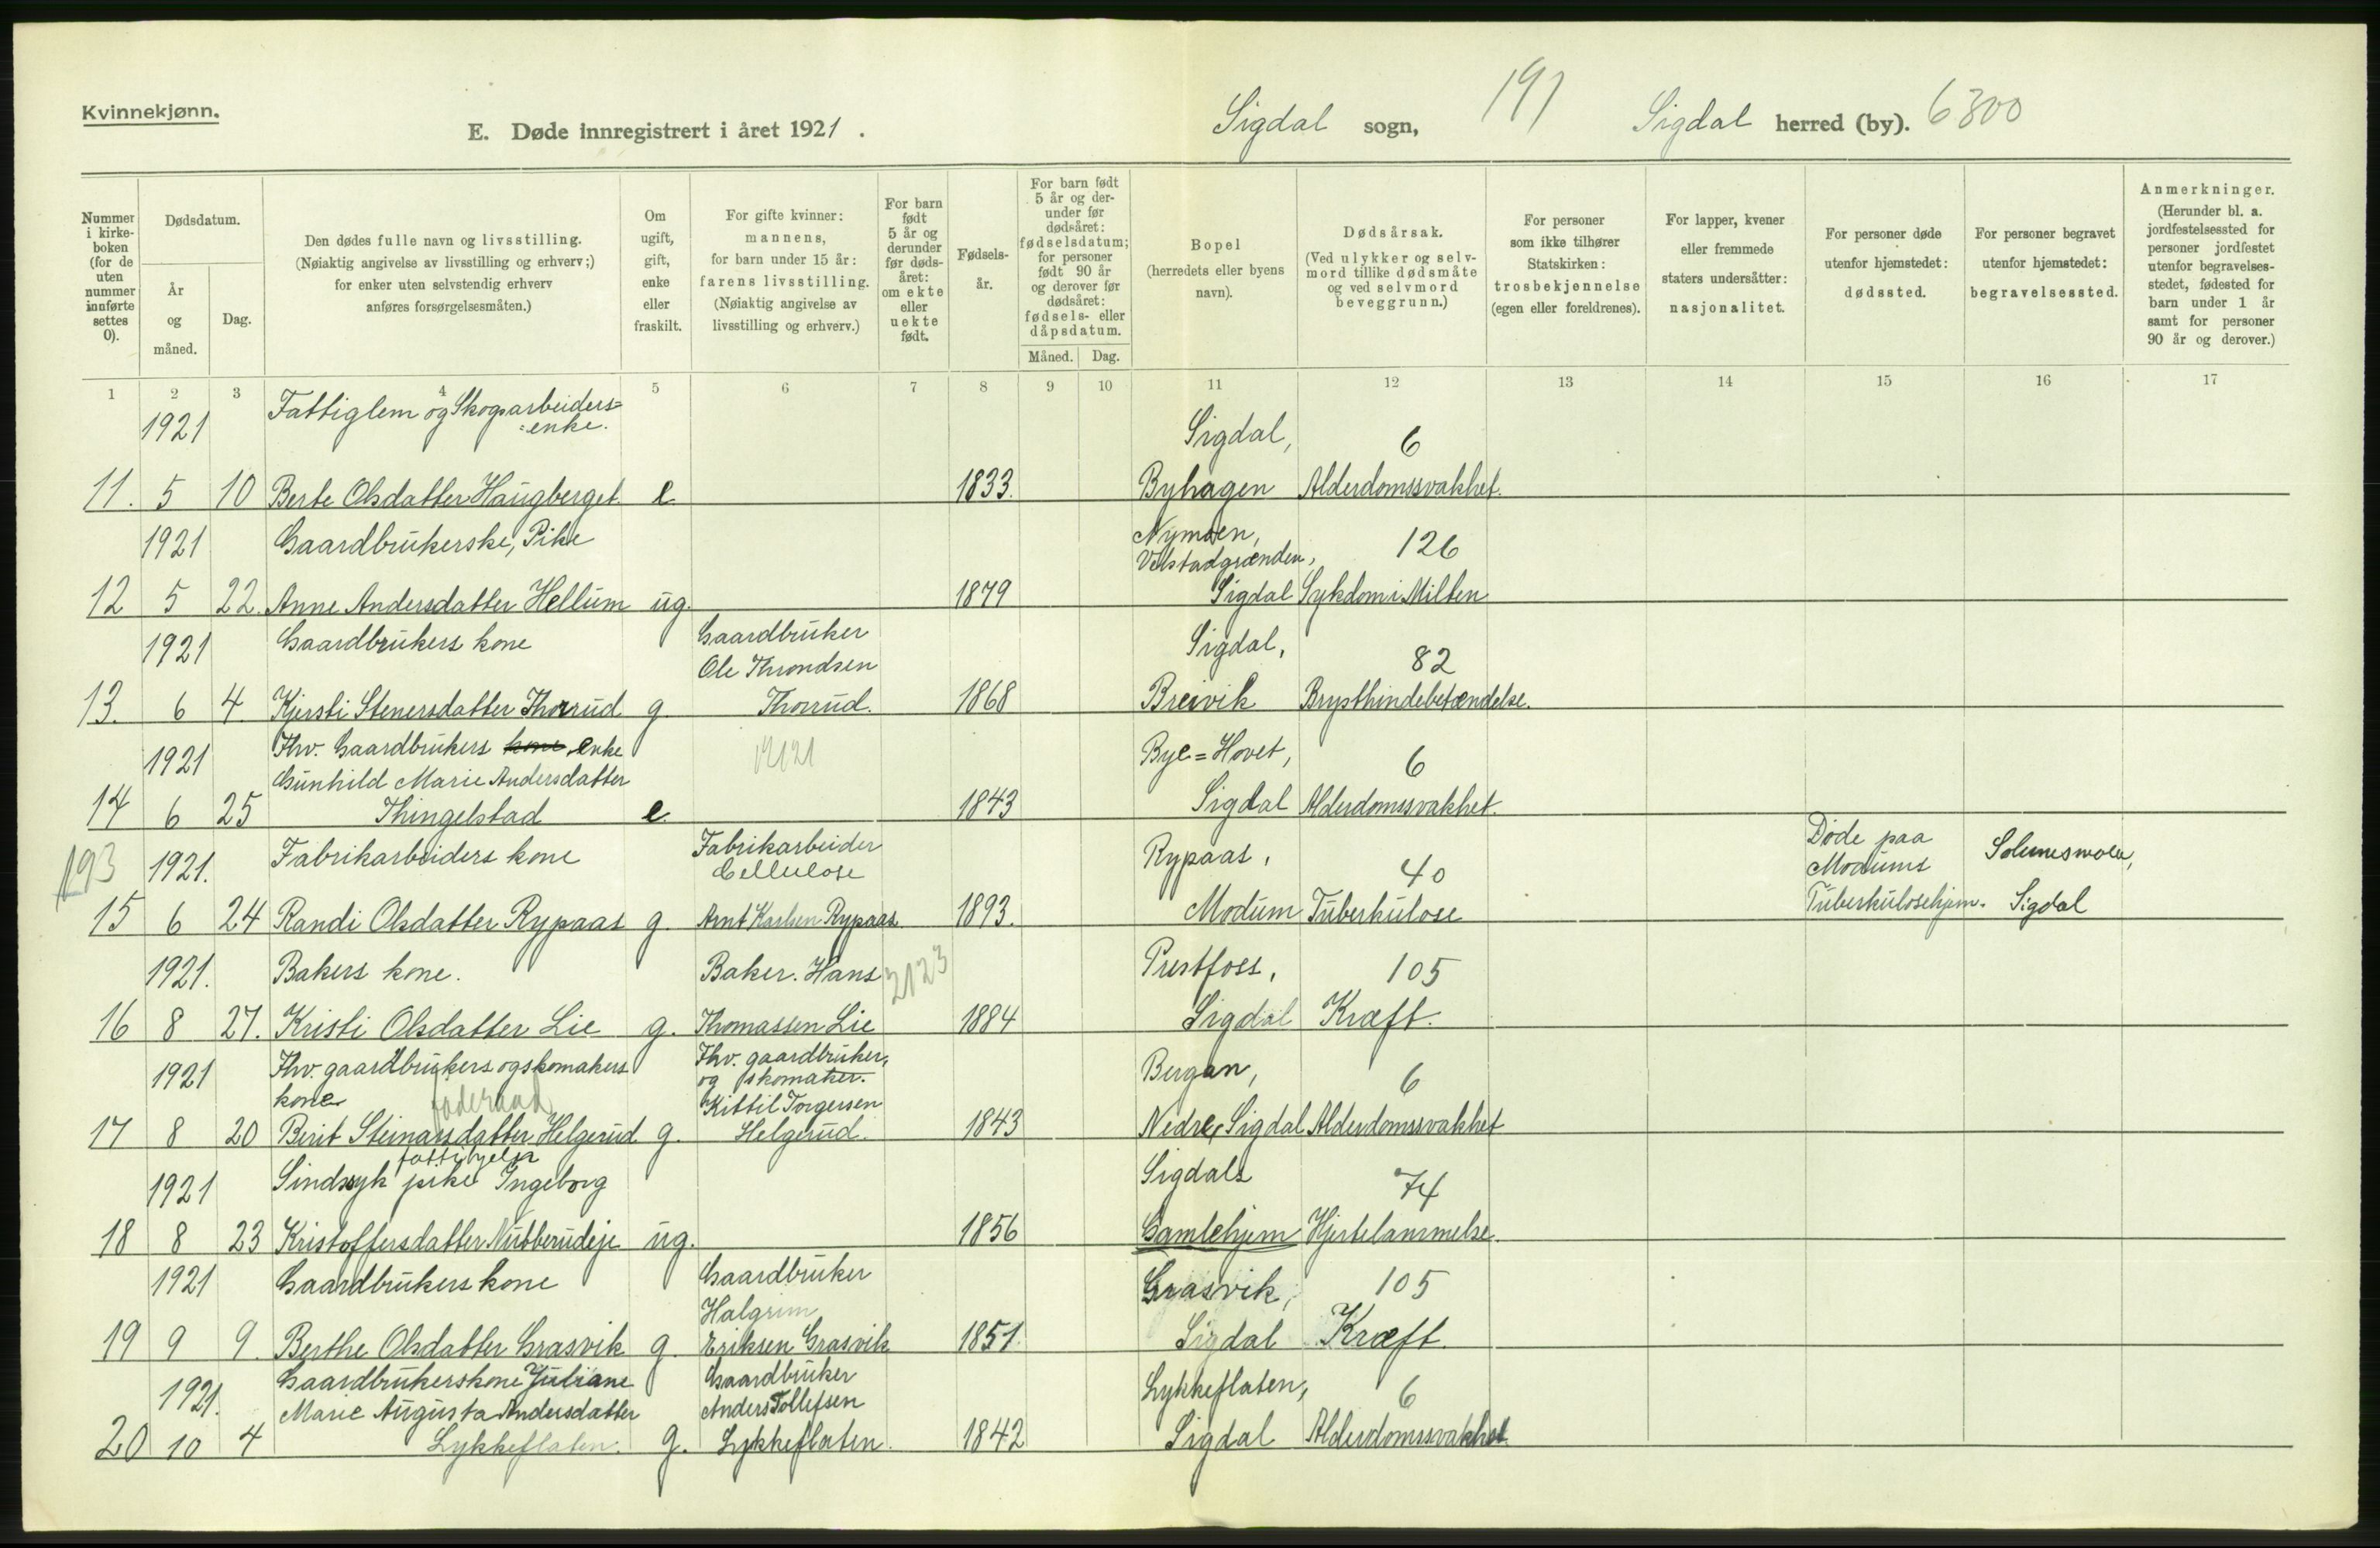 Kvinnekjønn.
E. Døde innregistrert i året 1921.
Sigdal sogn, 191 Sigdal herred (by). 6300
Nummer i kirkeboken (for de uten nummer innførte settes 0).
Dødsdatum.
År og måned.
Dag.
Den dødes fulle navn og livsstilling. (Nøiaktig angivelse av livsstilling og erhverv;) for enker uten selvstendig erhverv anføres forsørgelsesmåten.)
Om ugift, gift, enke eller fraskilt.
For gifte kvinner: mannens, for barn under 15 år: farens livsstilling. (Nøiaktig angivelse av livsstilling og erhverv.)
For barn født 5 år og derunder før dødsåret: om ekte eller uekte født.
Fødselsår.
For barn født 5 år og derunder før dødsåret: fødselsdatum; for personer født 90 år og derover før dødsåret: fødsels- eller dåpsdatum.
Måned. Dag.
Bopel (herredets eller byens navn).
Dødsårsak. (Ved ulykker og selvmord tillike dødsmåte og ved selvmord beveggrunn.)
For personer som ikke tilhører Statskirken: trosbekjennelse (egen eller foreldrenes).
For lapper, kvener eller fremmede staters undersåtter: nasjonalitet.
For personer døde utenfor hjemstedet: dødssted.
For personer begravet utenfor hjemstedet: begravelsessted.
Anmerkninger. (Herunder bl. a. jordfestelsessted for personer jordfestet utenfor begravelsesstedet, fødested for barn under 1 år samt for personer 90 år og derover.)
1 2 3 4 5 6 7 8 9 10 11 12 13 14 15 16 17
1921 Fattiglem og Skogsarbeiders=
=enke. Sigdal, 6
11. 5 10 Berte Olsdatter Haugberget e 1833. Byhagen Alderdomssvakhet.
1921 Gaardbrukerske, Pike Nymoen, 126
Velstadgrænden,
12 5 22. Anne Andersdatter Hellum ug. 1879 Sigdal Sykdom i Milten
1921 Gaardbrukers kone Gaardbruker Sigdal,
Ole Throndsen 82
13. 6 4. Kjersti Stenersdatter Thorud g. Thorud. 1868 Breivik Brysthindebetændelse.
1921 Fhv. Gaardbrukers kone enke 1921 Bye=Hovet, 6
Gunhild Marie Andersdatter
14 6 25 Thingelstad e. 1843 Sigdal Alderdomssvakhet.
193 1921. Fabrikarbeiders kone Fabrikarbeider Rypaas, 40 Døde paa Solumsmoen,
Cellulose Modums
15 6 24 Randi Olsdatter Rypaas g. Arnt Karlsen Rypaas 1893. Modum Tuberkulose Tuberkulosehjem. Sigdal
1921. Bakers kone. Baker. Hans 2123 Prestfoss, 105
16 8 27. Kristi Olsdatter Lie g. Thomassen Lie 1884 Sigdal Kræft.
1921 Fhv. gaardbrukers og skomakers Fhv. gaardbruker, Bergan, 6
kone føderaad og skomaker.
Kittil Torgersen
17 8 20 Berit Steinarsdatter Helgerud g. Helgerud. 1843 Nedre Sigdal Alderdomssvakhet
fattighjelp
1921 Sindssyk pike Ingeborg Sigdals 74
18 8 23 Kristoffersdatter Nubberudeje ug. 1856 Gamlehjem Hjertelammelse.
1921 Gaardbrukers kone Gaardbruker Grasvik, 105
Halgrim
19 9 9. Berthe Olsdatter Grasvik g. Eriksen Grasvik 1851. Sigdal Kræft.
1921. Gaardbrukerskone Juliane Gaardbruker Lykkeflaten, 6
Marie Augusta Andersdatter Anders Tollefsen
20 10 4 Lykkeflaten. g. Lykkeflaten. 1842 Sigdal Alderdomssvakhet.